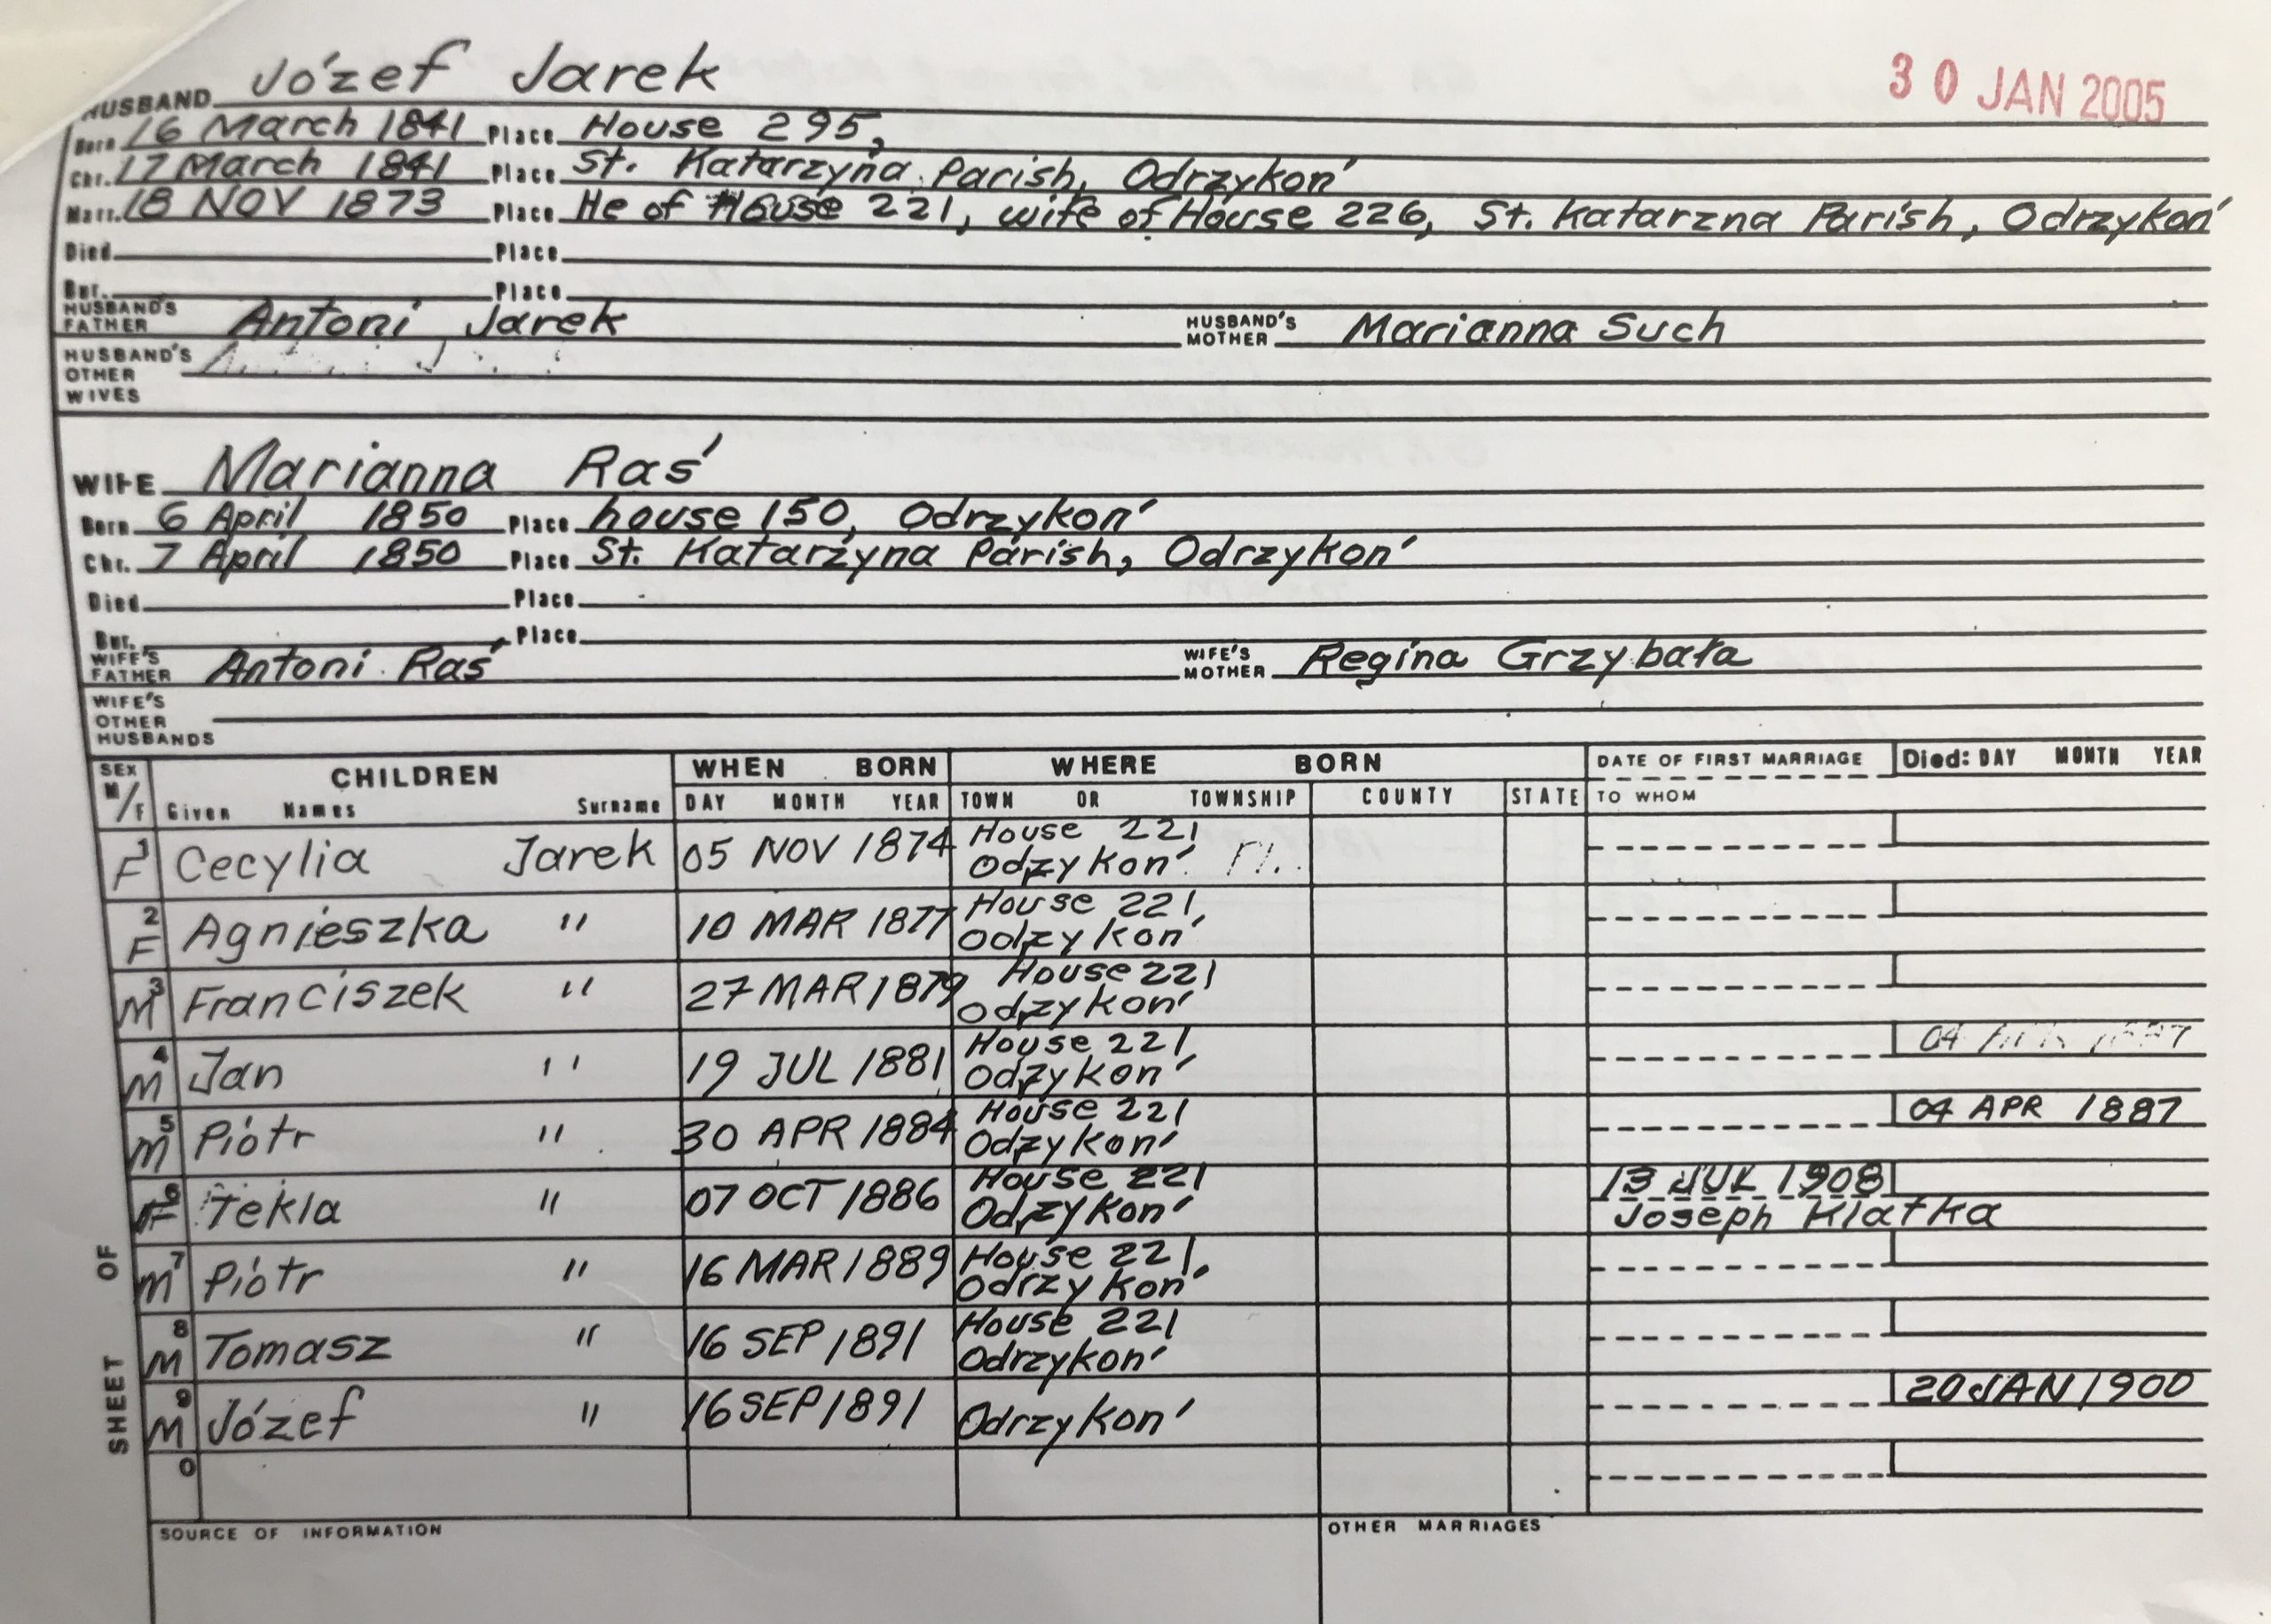 30 JAN 2005
HUSBAND Józef Jarek
Born 16 March 1841 Place House 295,
Chr. 17 March 1841 Place St. Katarzyna Parish, Odrzykoń
Marr. 18 NOV 1873 Place He of House 221, wife of House 226, St. Katarzna Parish, Odrzykoń
Died Place
Bur. Place
HUSBAND'S FATHER Antoni Jarek HUSBAND'S MOTHER Marianna Such
HUSBAND'S OTHER WIVES
WIFE Marianna Raś
Born 6 April 1850 Place house 150, Odrzykoń
Chr. 7 April 1850 Place St. Katarzyna Parish, Odrzykoń
Died Place
Bur. Place
WIFE'S FATHER Antoni Raś WIFE'S MOTHER Regina Grzybała
WIFE'S OTHER HUSBANDS
SEX M/F CHILDREN WHEN BORN WHERE BORN DATE OF FIRST MARRIAGE Died: DAY MONTH YEAR
Given Names Surname DAY MONTH YEAR TOWN OR TOWNSHIP COUNTY STATE TO WHOM
1 F Cecylia Jarek 05 NOV 1874 House 221 Odrzykoń
2 F Agnieszka " 10 MAR 1877 House 221, Odrzykoń
3 M Franciszek " 27 MAR 1879 House 221 Odrzykoń
4 M Jan " 19 JUL 1881 House 221 Odrzykoń
5 M Piótr " 30 APR 1884 House 221 Odrzykoń 04 APR 1887
6 F Tekla " 07 OCT 1886 House 221 Odrzykoń 13 JUL 1908 Joseph Klatka
7 M Piótr " 16 MAR 1889 House 221, Odrzykoń
8 M Tomasz " 16 SEP 1891 House 221 Odrzykoń
9 M Józef " 16 SEP 1891 Odrzykoń 20 JAN 1900
0
SHEET OF
SOURCE OF INFORMATION OTHER MARRIAGES